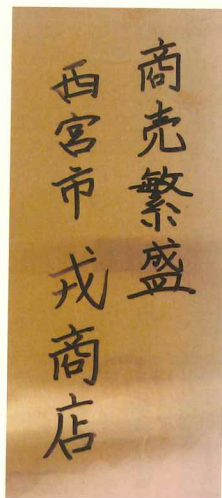 商売繁盛
西宮市 戎商店